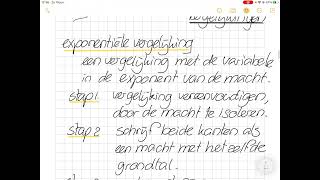 vergelijkingen
exponentiële vergelijking
een vergelijking met de variabele
in de exponent van de macht.
stap 1 vergelijking vereenvoudigen,
door de macht te isoleren.
stap 2 schrijf beide kanten als
een macht met hetzelfde
grondtal.